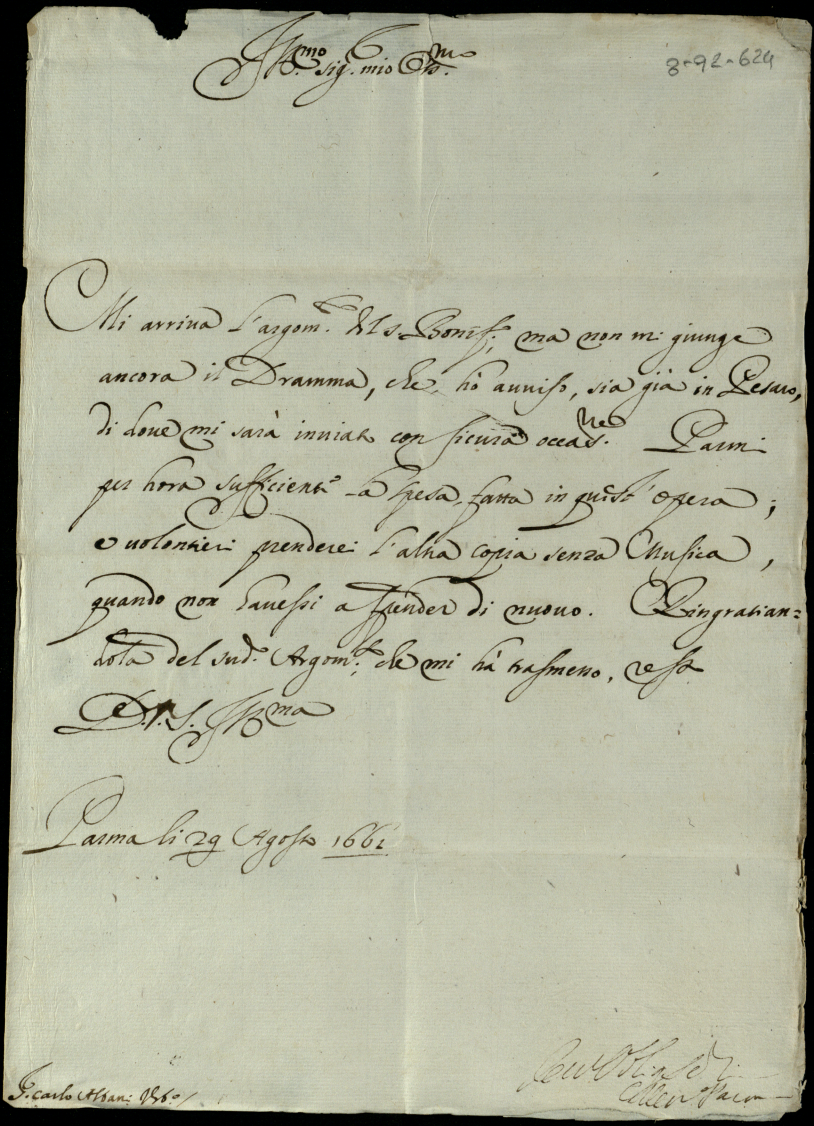 Ill.mo sig. mio
8-92-624
Mi arriva l'argom.to del s. Bonif.; ma non mi giunge
ancora il Dramma, che hò auuiso, sia già in Pesaro,
di doue mi sarà inuiato con sicura occas.ne Parmi
per hora sufficiente la spesa fatta in quest' opera;
e uolontieri prenderei l'altra copia senza Musica,
quando non hauessi a spender di nuouo. Ringratian=
dola del sud.o Argom.to, che mi hà trasmesso, resto
D. V. S. Ill.ma
Parma li 29 Agosto 1661
S. Carlo Albani Urb.o